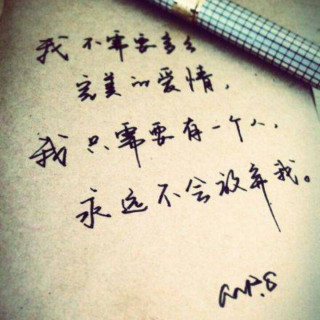 我不需要多么
完美的爱情，
我只需要有一个人，
永远不会放弃我。